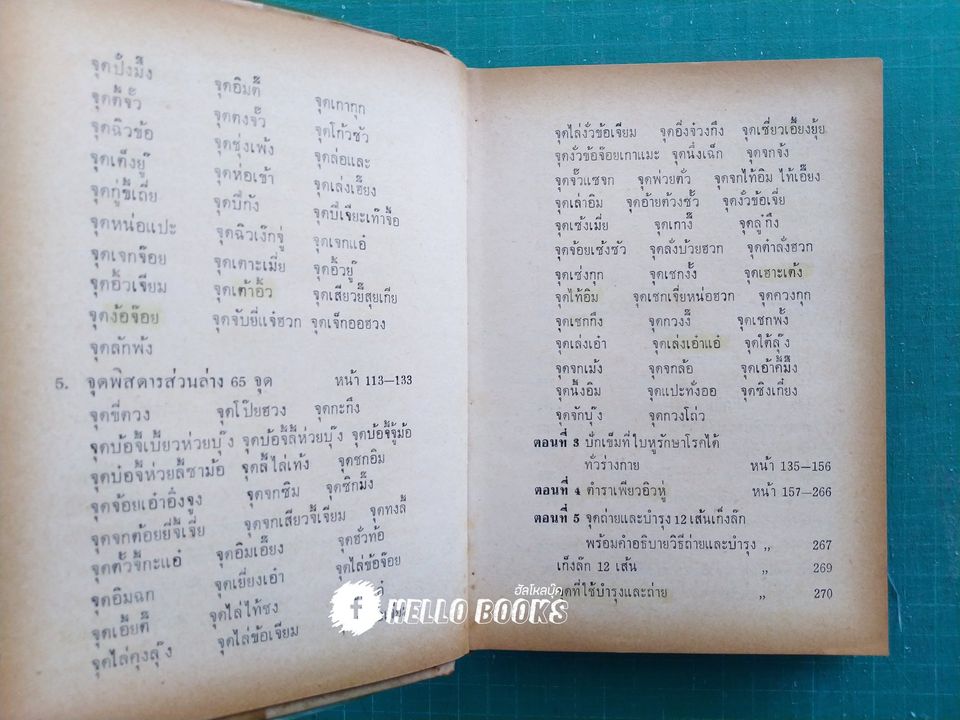 จุดบ้งมึ้ง จุดอิมตี๊ จุดเกากุก
จุดตี้จั้ว จุดตงจิ๊ว จุดโก้วซัว
จุดฉิวข้อ จุดซุ่งเพ้ง จุดล่อและ
จุดเต็งยู้ จุดห่อเข้า จุดเล่งเฮี้ยง
จุดกู่ขี้เถี่ย จุดบี้กัง จุดบี่เจียะเท๊าจื้อ
จุดหน่อแปะ จุดฉิวเง๊กจู่ จุดเจกแอ๋
จุดเจกจ๊อย จุดเตาะเมี่ย จุดอิ้วยู๊
จุดอิ้วเจียม จุดเต้าอิ้ว จุดเสียวยี้สุยเกีย
จุดง้อจ๊อย จุดจับยี่แจ๋ฮวก จุดเจ็กออฮวง
จุดลักพ้ง
5. จุดพิสดารส่วนล่าง 65 จุด หน้า 113—133
จุดขี่ควง จุดโป๊ยฮวง จุดกะกึง
จุดบ้อจี้เบี้ยวห่วยบุ๊ง จุดบ้อจี้สี้ห่วยบุ๊ง จุดบ้อจี้จู้ม้อ
จุดบ๋อจี้ห่วยสี้ซาม้อ จุดสี้ไล่เท้ง จุดชกอิม
จุดจ้อยเอ๋าอึ่งจูง จุดจกซิม จุดซิกมึ้ง
จุดจกต้อยยี่จี้เจี่ย จุดจกเสียวจี้เจียม จุดทงลี้
จุดตั้วจี้กะแอ๋ จุดอิมเอี้ยง จุดฮั่วท้อ
จุดอิมฉก จุดเยี่ยงเอ๋า จุดไล่ข้อจ๊อย
จุดเอี้ยตี้ จุดไล่ไท้ชง
จุดไล่คุงลุ๊ง จุดไล่ข้อเจียม
ฮัลโหลบุ๊ค
HELLO BOOKS
จุดไล่งั่วข้อเจียม จุดอึ่งจ๋วงกึง จุดเซี่ยวเอี๊ยงยุ้ย
จุดงั่วข้อจ๊อยเกาแมะ จุดนึ่งเฉ็ก จุดจกจ้ง
จุดจั๊วแซจก จุดพ่วยตั่ว จุดจกไท้อิม ไท้เอี๊ยง
จุดเล่าอิม จุดอ้ายต้วงซั้ว จุดงั่วข้อเจี่ย
จุดเซ้งเมี่ย จุดเกางี้ จุดลู๋กึง
จุดจ้อยเซ้งซัว จุดลั่งบ้วยฮวก จุดตำลั่งฮวก
จุดเซ่งกุก จุดเซกงั้ง จุดเฮาะเต้ง
จุดไท้อิม จุดเซกเจี่ยหน่อฮวก จุดควงกุก
จุดเซกกึง จุดกวงงี้ จุดเซกพั้ง
จุดเล่งเอ๋า จุดเล่งเอ๋าแอ๋ จุดใต้ลุ๊ง
จุดจกเม้ง จุดจกล้อ จุดเอ๋าคี้มึ้ง
จุดนึ้งอิม จุดแปะทั่งออ จุดซิงเกี่ยง
จุดจักบุ๊ง จุดกวงโถ่ว
ตอนที่ 3 บักเข็มที่ใบหูรักษาโรคได้
ทั่วร่างกาย หน้า 135—156
ตอนที่ 4 ตำราเพียวอิวหู่ หน้า 157—266
ตอนที่ 5 จุดถ่ายและบำรุง 12 เส้นเก็งล๊ก
พร้อมคำอธิบายวิธีถ่ายและบำรุง ,, 267
เก็งล๊ก 12 เส้น ,, 269
จุดที่ใช้บำรุงและถ่าย ,, 270